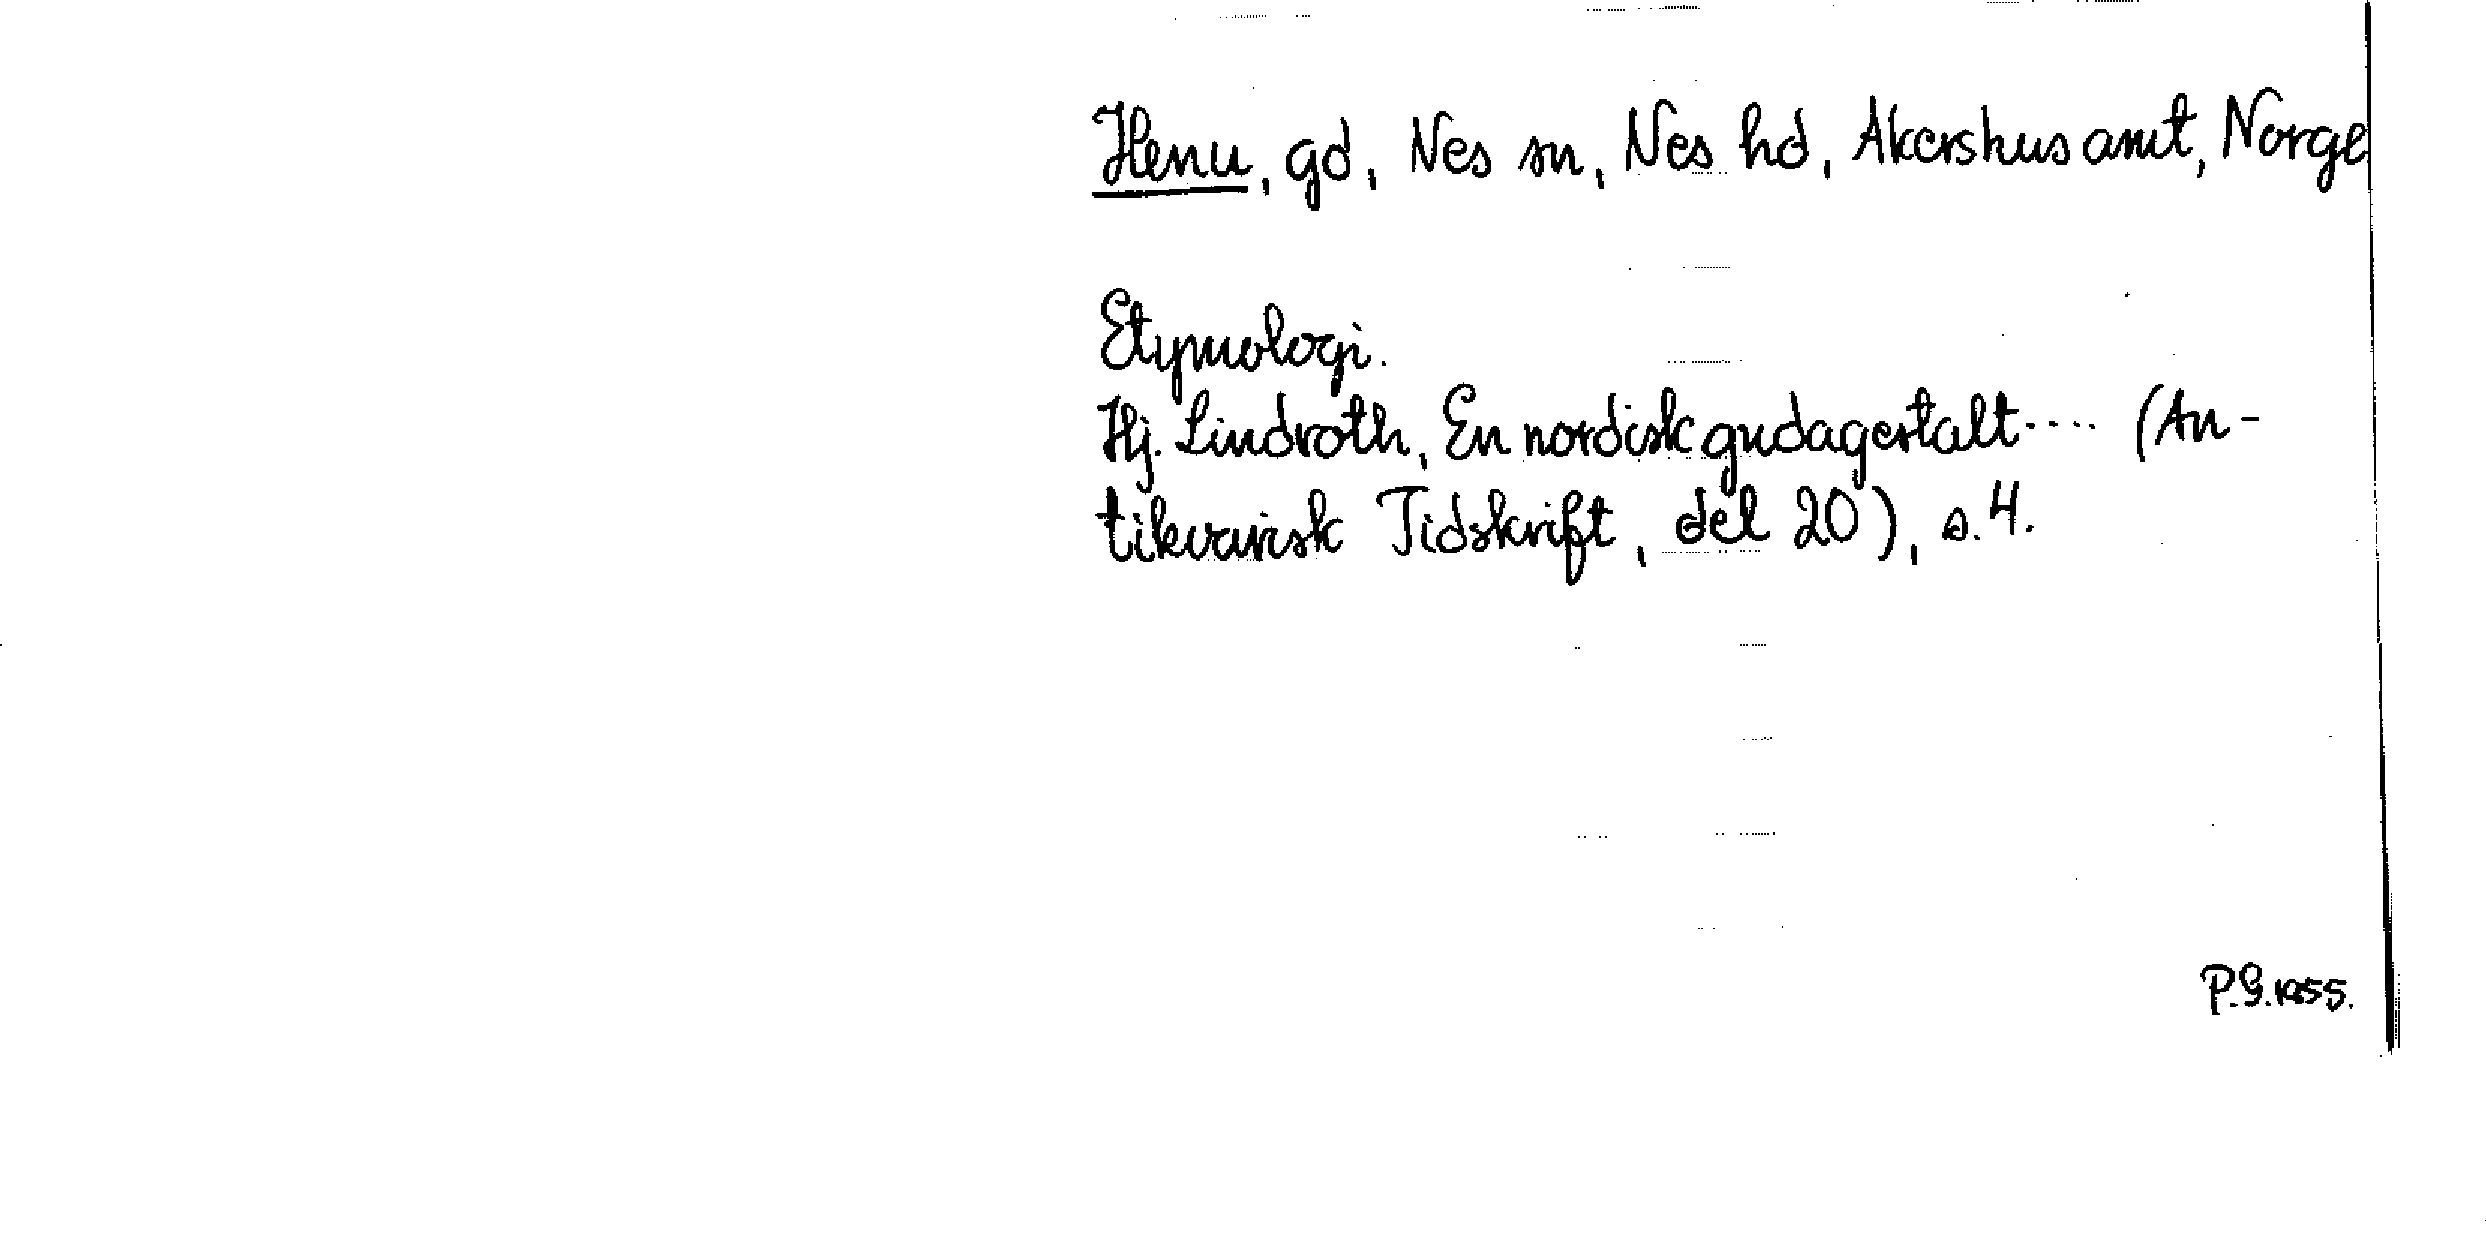 Henu, gd, Nes sn, Nes hd, Akershus amt, Norge
Etymologi.
Hj. Lindroth, En nordisk gudagestalt.... (An-
tikvarisk Tidskrift, del 20), s. 4.
P.G. 1955.